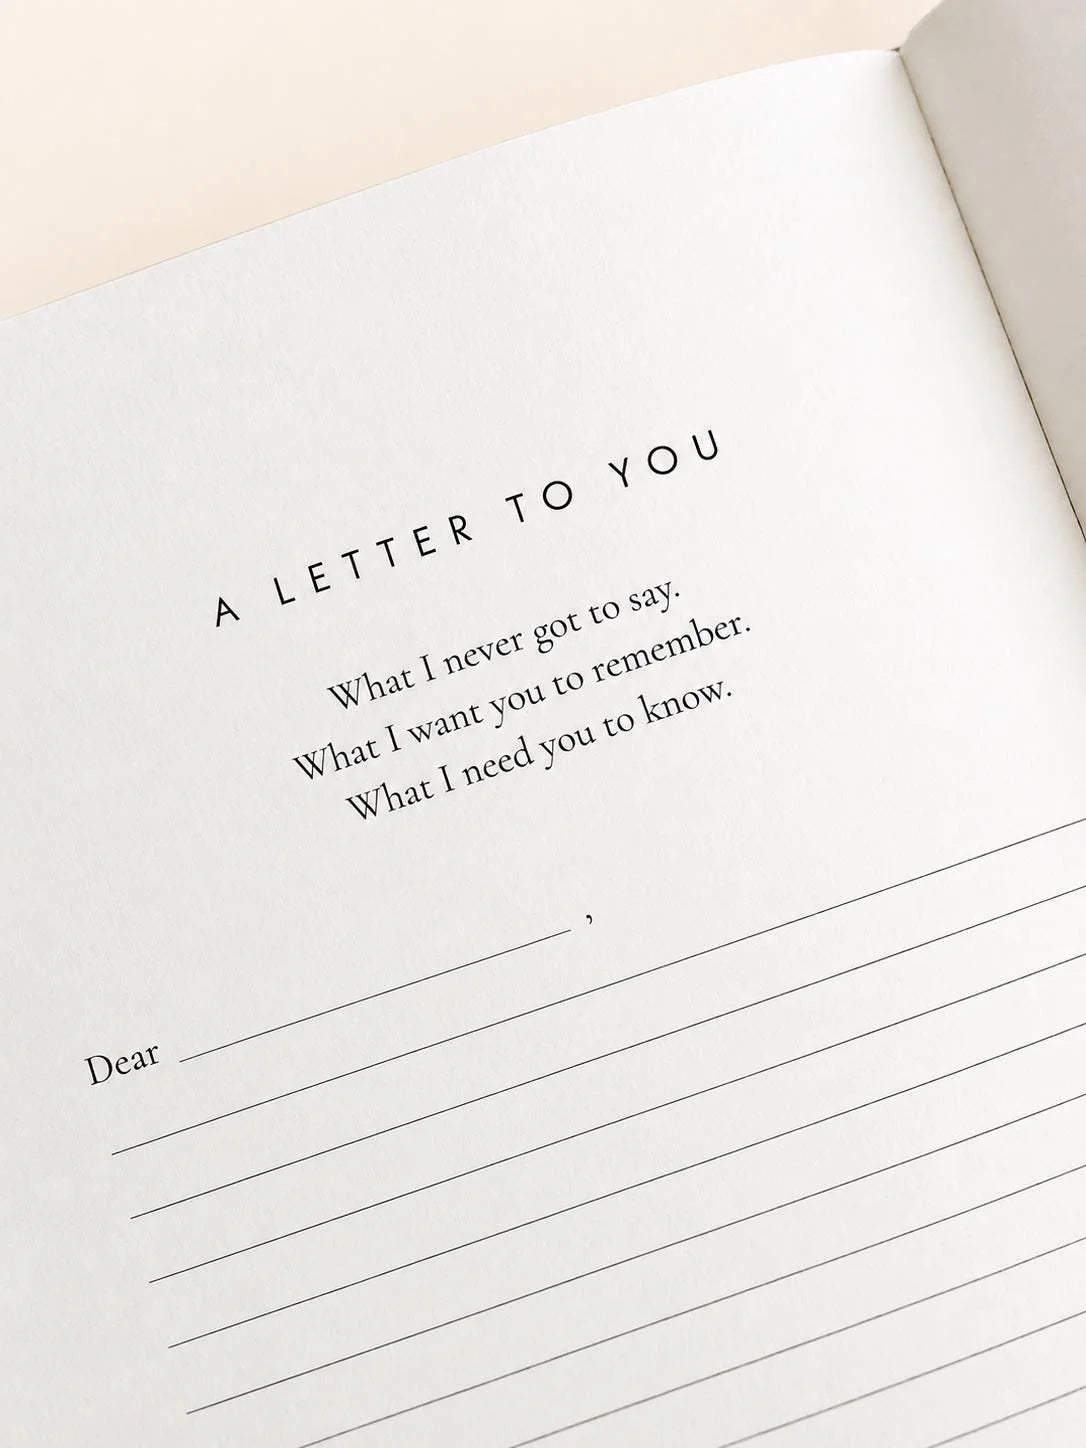 A LETTER TO YOU
What I never got to say.
What I want you to remember.
What I need you to know.
Dear ,